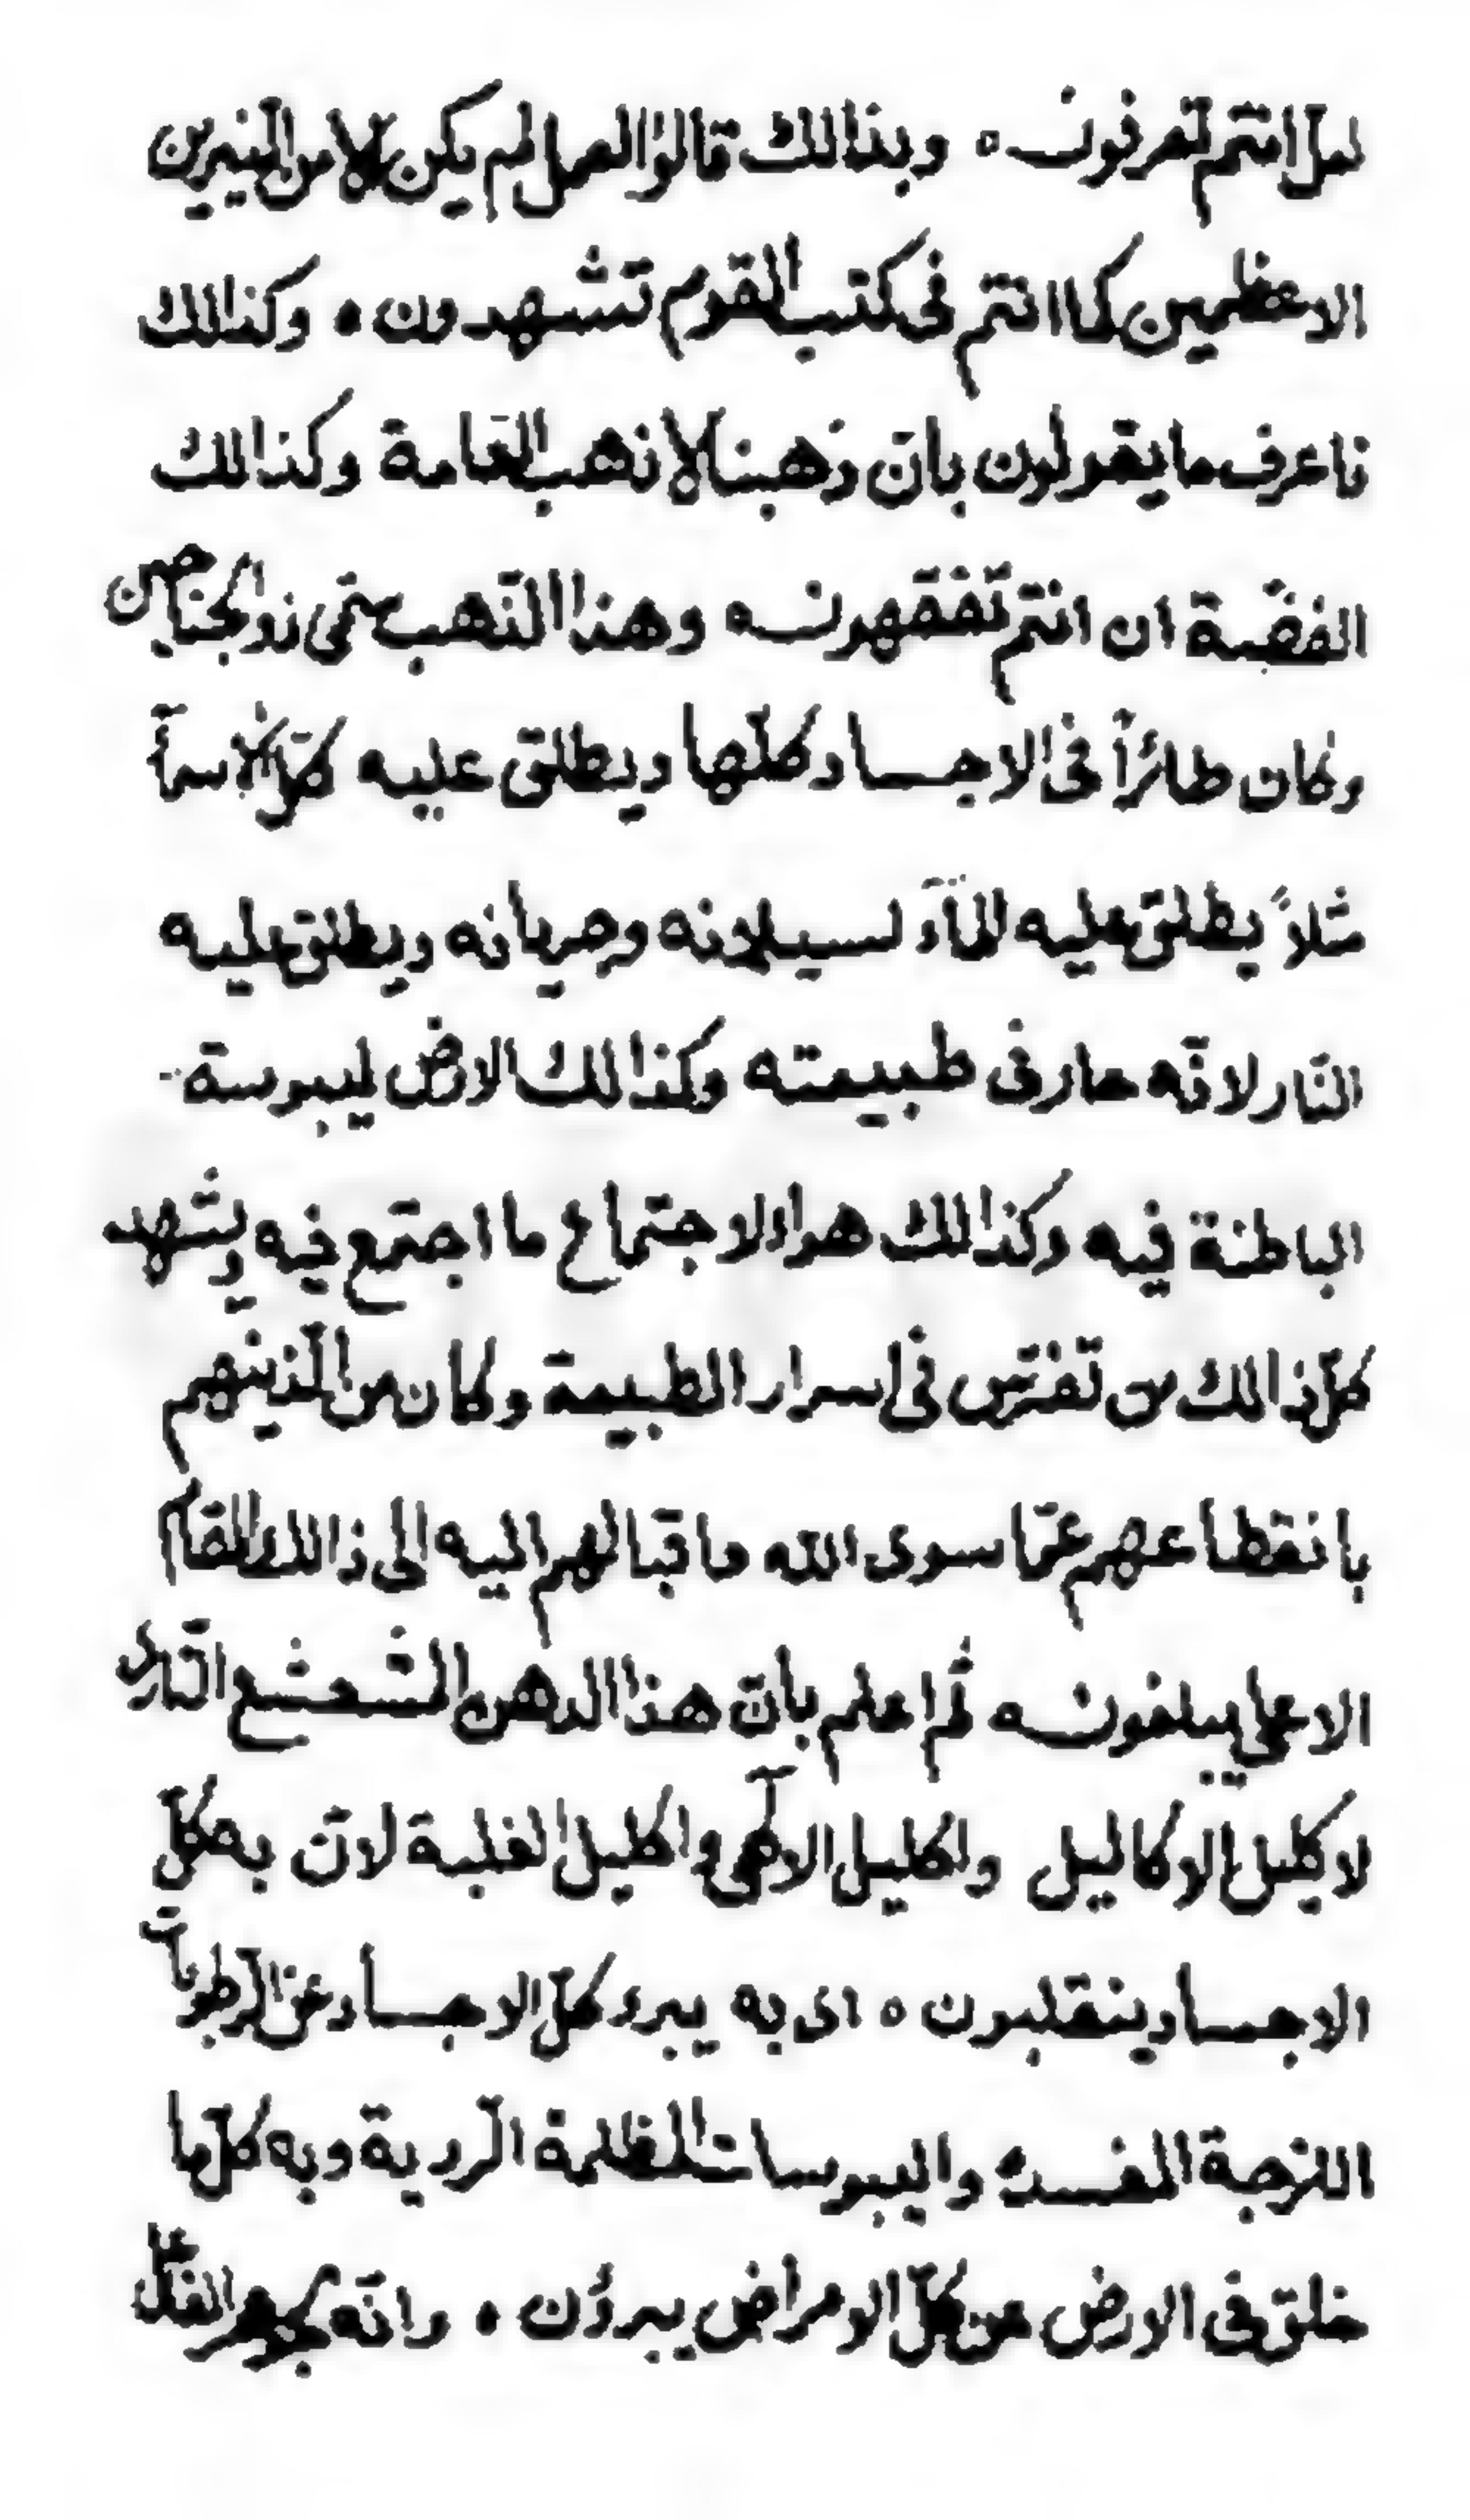 لعل انتم تعرفون ه وبذالك قالوا العمل لم يكن الا من النيرين
الاعظمين كما انتم فى كتب القوم تشهدون ه وكذالك
فاعرف ما يقولون بان ذهبنا لا ذهب العامة وكذالك
الفضة ان انتم تفقهون ه وهذا الذهب سمى ذو الجناحين
وكان طائراً فى الاجساد كلها ويطلق عليه كل الاسمآء
مثلاً يطلق عليه المآء لسيلانه وجريانه ويطلق عليه
النار لانه حار فى طبيعته وكذالك الارض ليبوسة
الباطنة فيه وكذالك هوا لاجتماع ما اجتمع فيه ويشهد
كل ذالك من تفرس فى اسرار الطبيعة وكان من الذينهم
بانقطاعهم عما سوى الله واقبالهم اليه الى ذالك المقام
الاعلى يبلغون ه ثم اعلم بان هذا الدهن المشعشع النارى
لاكليل الاكاليل واكليل الابهى واكليل الغلبة لان به كل
الاجساد ينقلبون ه اى به يبرء كل الاجساد عن الرطوبات
اللزجة المفسدة واليبوسات المظلمة الردية وبه كل ما
خلق فى الارض عن كل الامراض يبرؤن ه وانه لجوهر الفعال